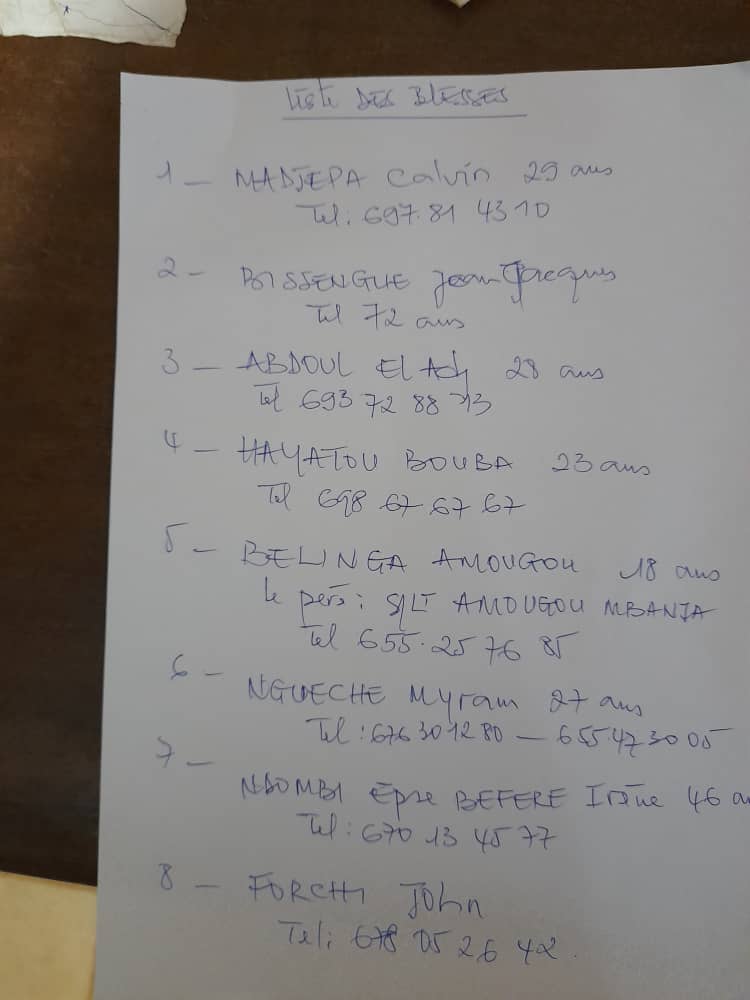 LISTE DES BLESSES
1 - MADJEPA Calvin 29 ans
Tel: 697.81 43 10
2 - BISSENGUE Jean Jacques
Tel 72 ans
3 - ABDOUL El Adj 28 ans
Tel 693 72 88 13
4 - HAYATOU BOUBA 23 ans
Tel 698 67 67 67
5 - BELINGA AMOUGOU 18 ans
le père: S/LT AMOUGOU MBANJA
Tel 655.25 76 85
6 - NGUECHE Myram 27 ans
Tel: 676 30 12 80 - 655 47 30 05
7 - NDOMBI épse BEFERE Irène 46 an
Tel: 670 13 45 77
8 - FORCHI John
Tel: 678 05 26 42.